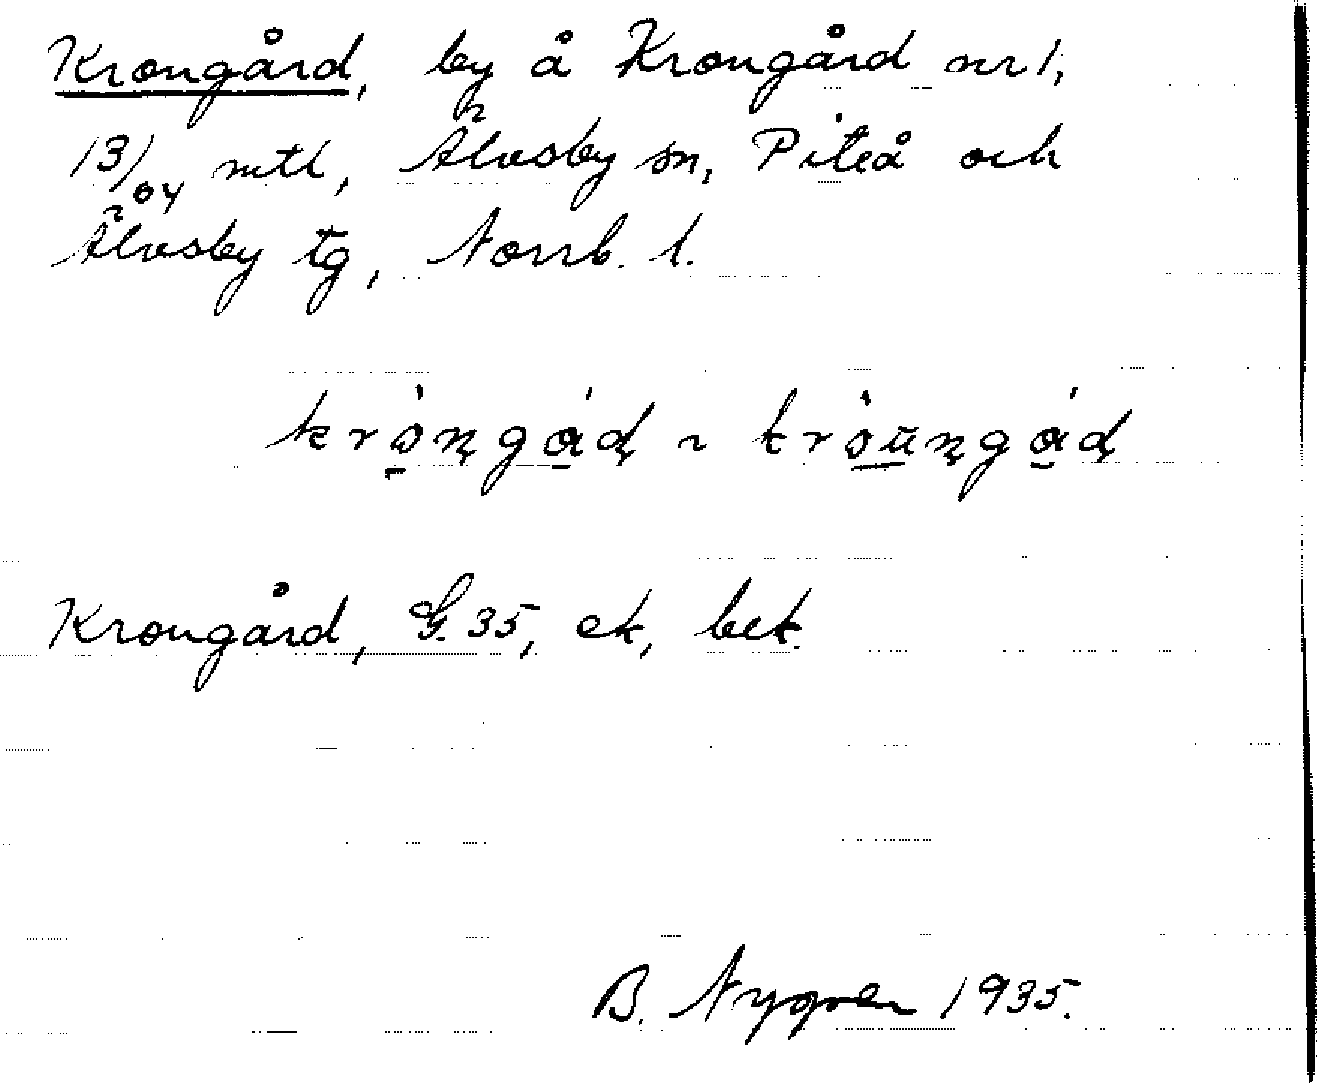 Krongård, by å Krongård nr 1,
13/64 mtl, Älvsby sn, Piteå och
Älvsby tg, Norrb. l.
krångad ~ kråungad
Krongård, G. 35, ek, bet.
B. Nygren 1935.